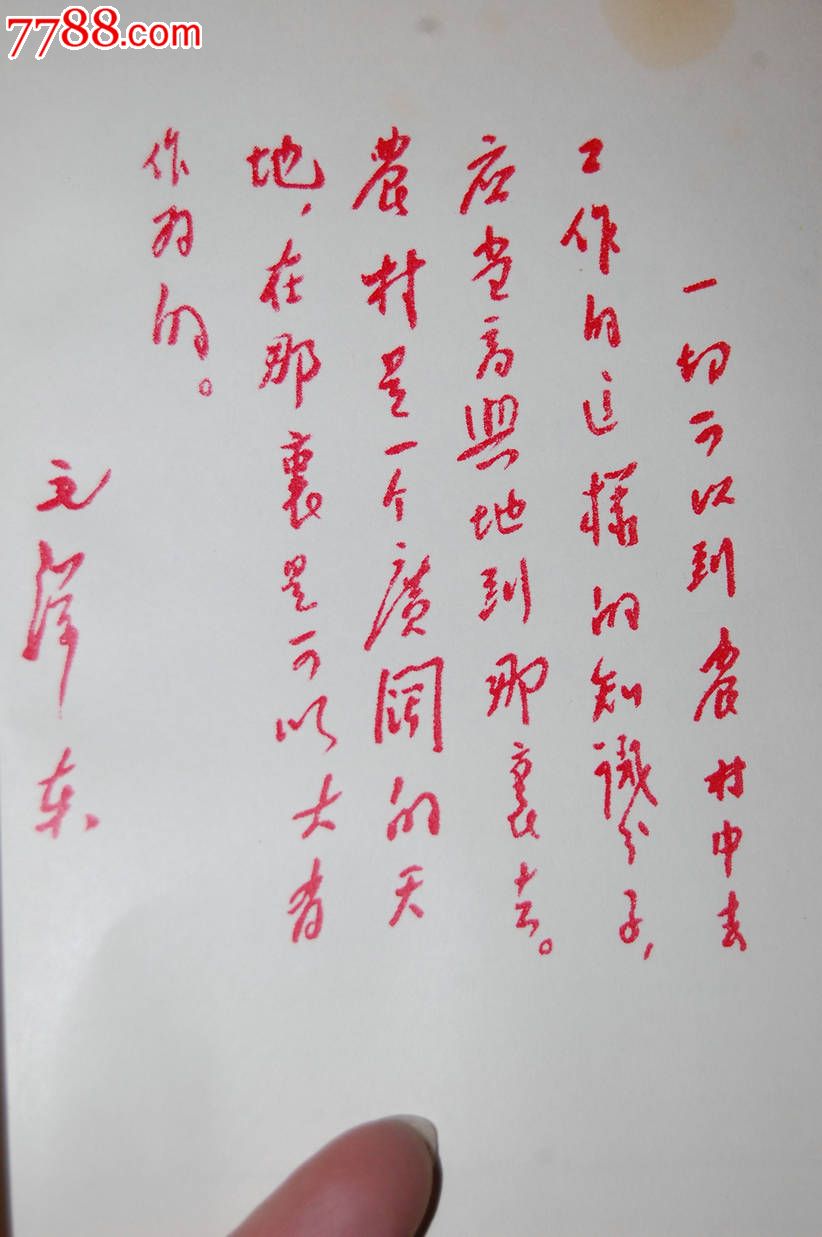 7788.com
一切可以到农村中去
工作的这样的知識分子,
应当高興地到那裏去。
農村是一个廣闊的天
地,在那裏是可以大有
作为的。
毛泽东